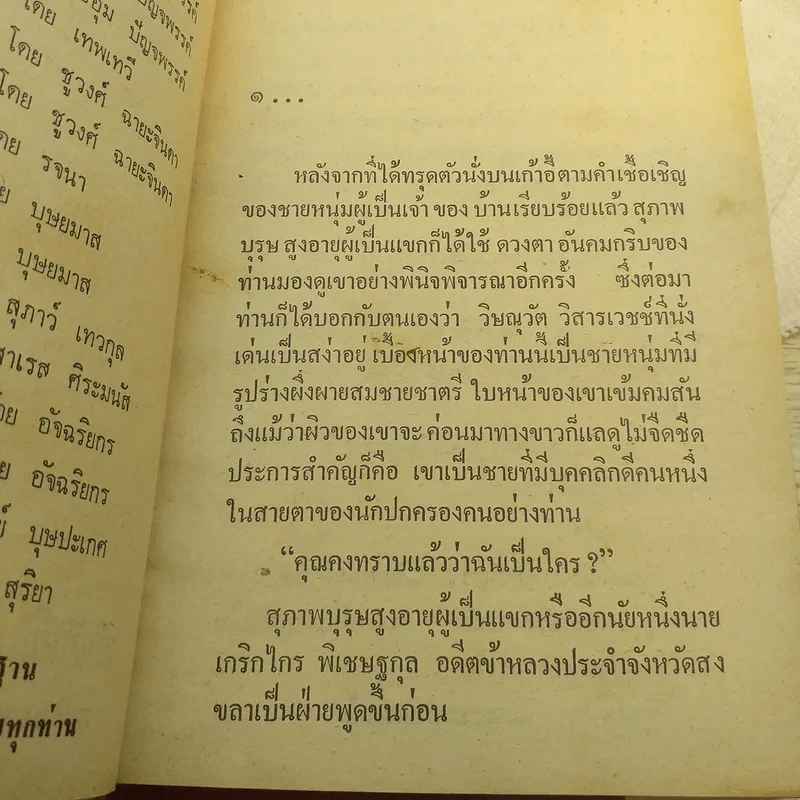 ปัญจพรรค์
โดย เทพเทวี
โดย ชูวงศ์ ฉายะจินดา
โดย ชูวงศ์ ฉายะจินดา
รจนา
บุษยมาส
บุษยมาส
สุภาว์ เทวกุล
ศิระมนัส
อัจฉริยกร
อัจฉริยกร
บุษปะเกศ
สุริยา
ทุกท่าน
๑ ...
หลังจากที่ได้ทรุดตัวนั่งบนเก้าอี้ตามคำเชื้อเชิญ
ของชายหนุ่มผู้เป็นเจ้า ของ บ้านเรียบร้อยแล้ว สุภาพ
บุรุษ สูงอายุผู้เป็นแขกก็ได้ใช้ ดวงตา อันคมกริบของ
ท่านมองดูเขาอย่างพินิจพิจารณาอีกครั้ง ซึ่งต่อมา
ท่านก็ได้บอกกับตนเองว่า วิษณุวัต วิสารเวชช์ที่นั่ง
เด่นเป็นสง่าอยู่ เบื้องหน้าของท่านนี้เป็นชายหนุ่มที่มี
รูปร่างผึ่งผายสมชายชาตรี ใบหน้าของเขาเข้มคมสัน
ถึงแม้ว่าผิวของเขาจะ ค่อนมาทางขาวก็แลดูไม่จืดชืด
ประการสำคัญก็คือ เขาเป็นชายที่มีบุคคลิกดีคนหนึ่ง
ในสายตาของนักปกครองคนอย่างท่าน
“คุณคงทราบแล้วว่าฉันเป็นใคร ?”
สุภาพบุรุษสูงอายุผู้เป็นแขกหรืออีกนัยหนึ่งนาย
เกริกไกร พิเชษฐกุล อดีตข้าหลวงประจำจังหวัดสง
ขลาเป็นฝ่ายพูดขึ้นก่อน